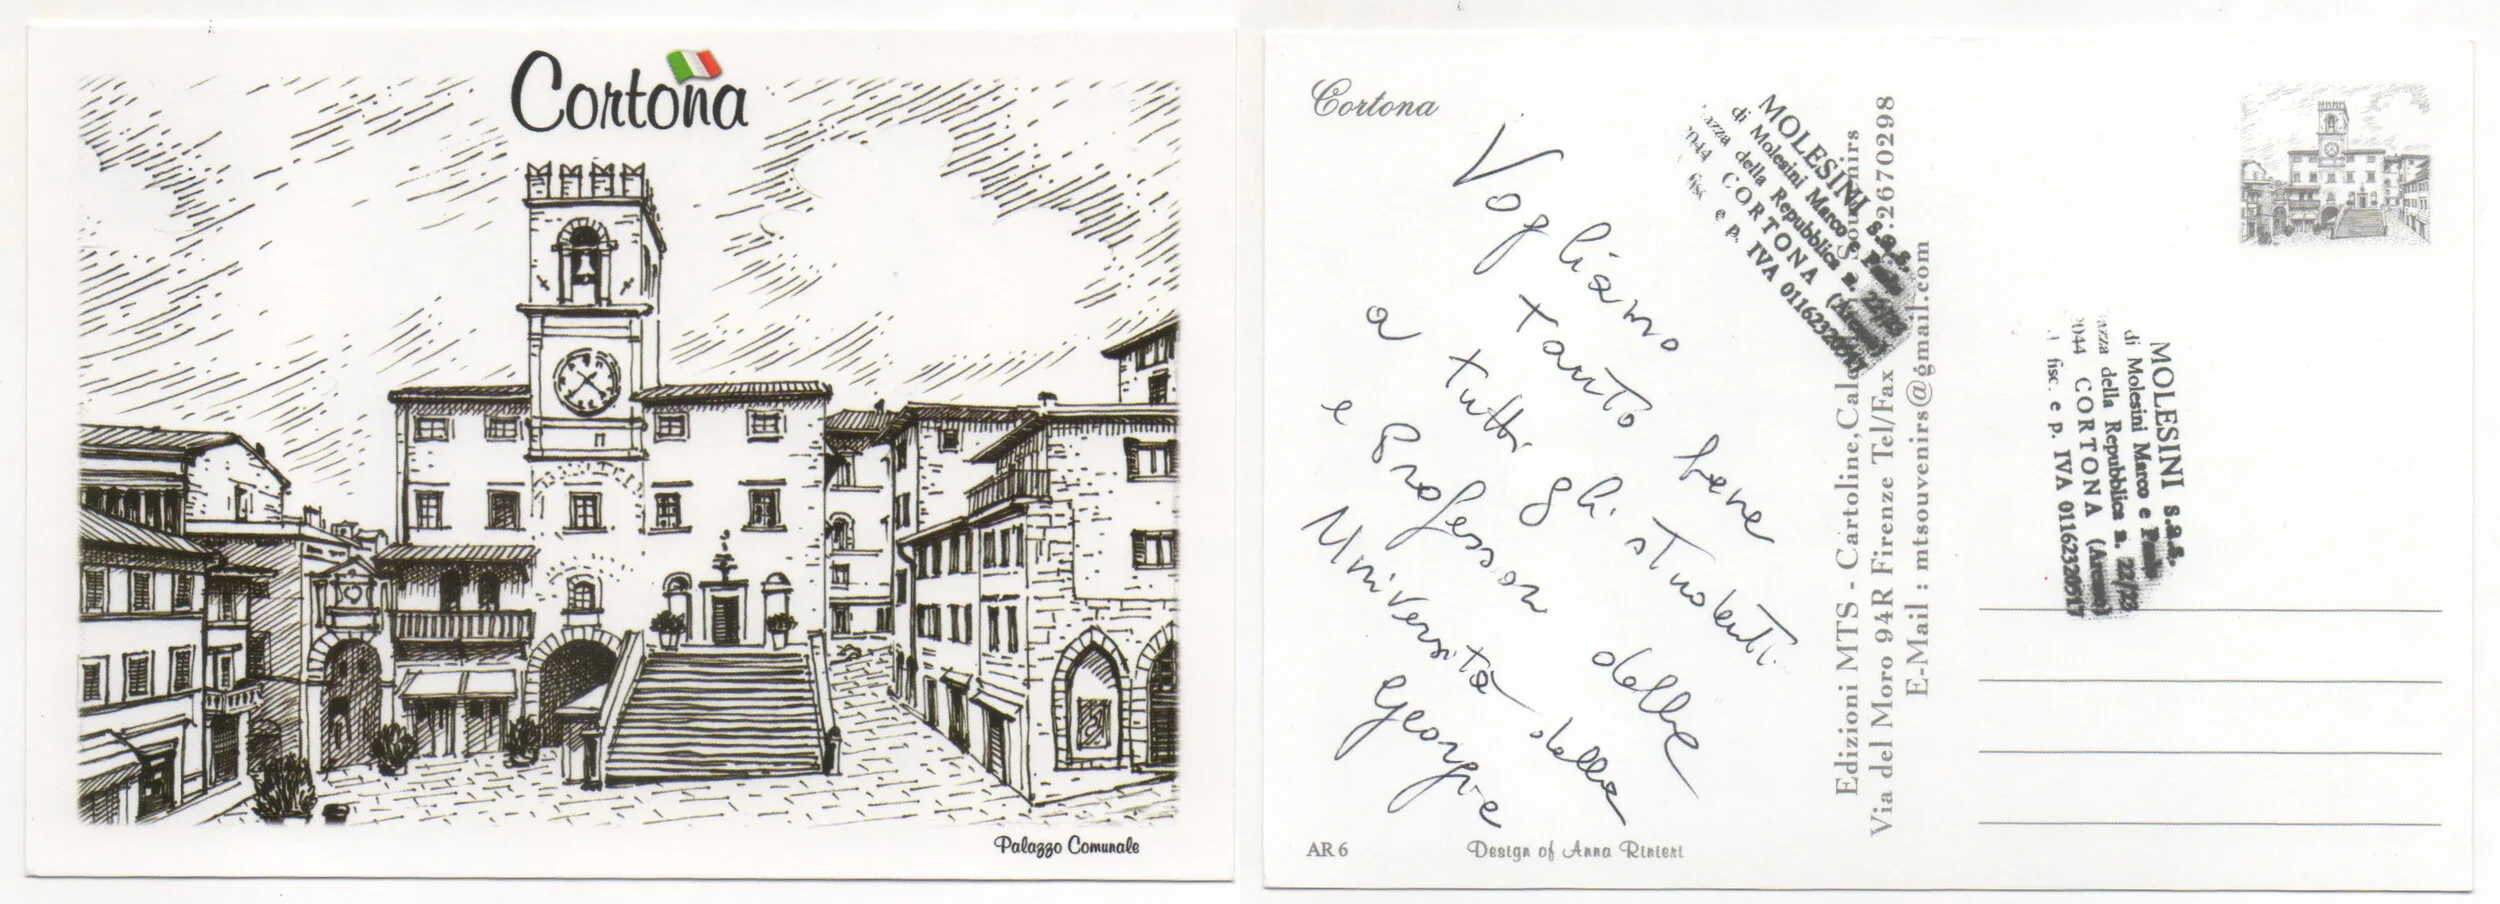 Cortona
Palazzo Comunale
Cortona
Vogliamo
tanto bene
a tutti gli studenti
e Professori delle
Università della
Georgie
AR 6
Design of Anna Rinieri
MOLESINI s.a.s.
di Molesini Marco e
della Repubblica n.
CORTONA (Arezzo)
fisc. e p. IVA 01162320517
Edizioni MTS - Cartoline, Souvenirs
Via del Moro 94R Firenze Tel/Fax 2670298
E-Mail : mtsouvenirs@gmail.com
MOLESINI s.a.s.
di Molesini Marco e
della Repubblica n. 22/23
CORTONA (Arezzo)
fisc. e p. IVA 01162320517